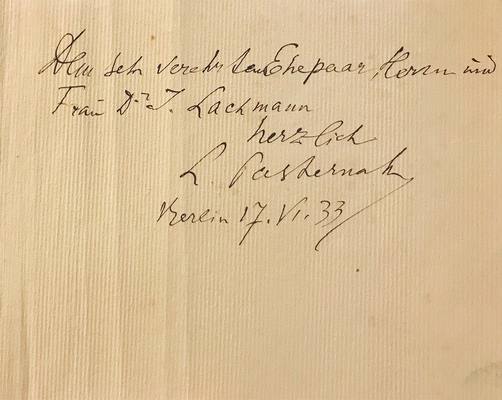 Dem sehr verehrten Ehepaar, Herrn und
Frau Dr. J. Lachmann
herzlich
L. Pasternak
Berlin 17. VI. 33